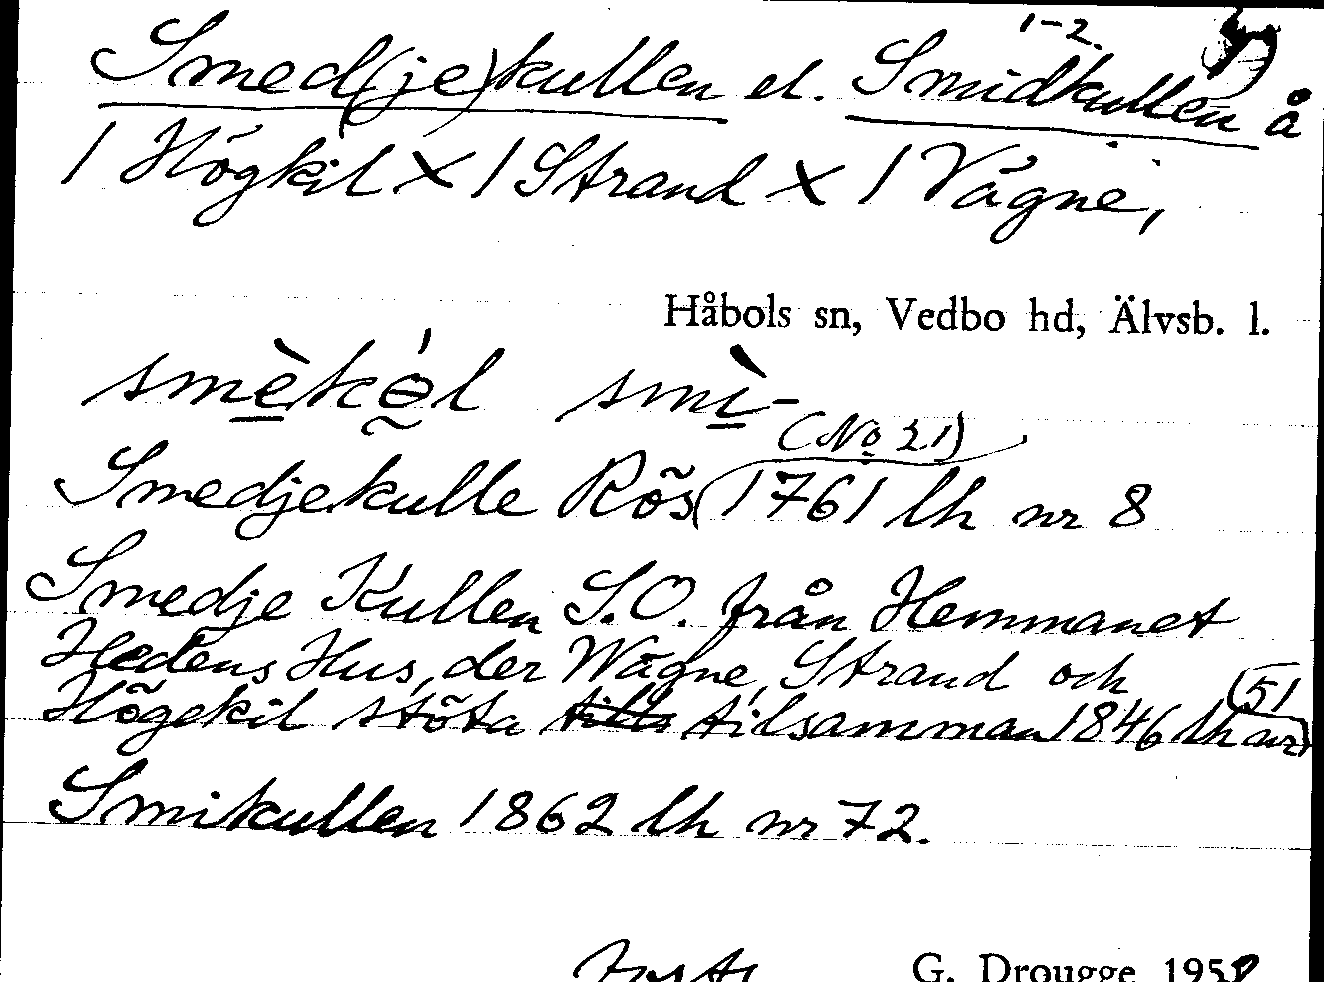 1-2.
Smed(je)kullen el. Smidkullen å
1 Högkil X 1 Strand X 1 Vågne,
Håbols sn, Vedbo hd, Älvsb. l.
smèkə́l smì-
(No 21)
Smedjekulle Rös 1761 lh nr 8
Smedje Kullen S.O. från Hemmanet
Hedens Hus, der Wågne, Strand och
Högekil stöta tilsamman 1846 lh nr 51
Smikullen 1862 lh nr 72.
G. Drougge 195